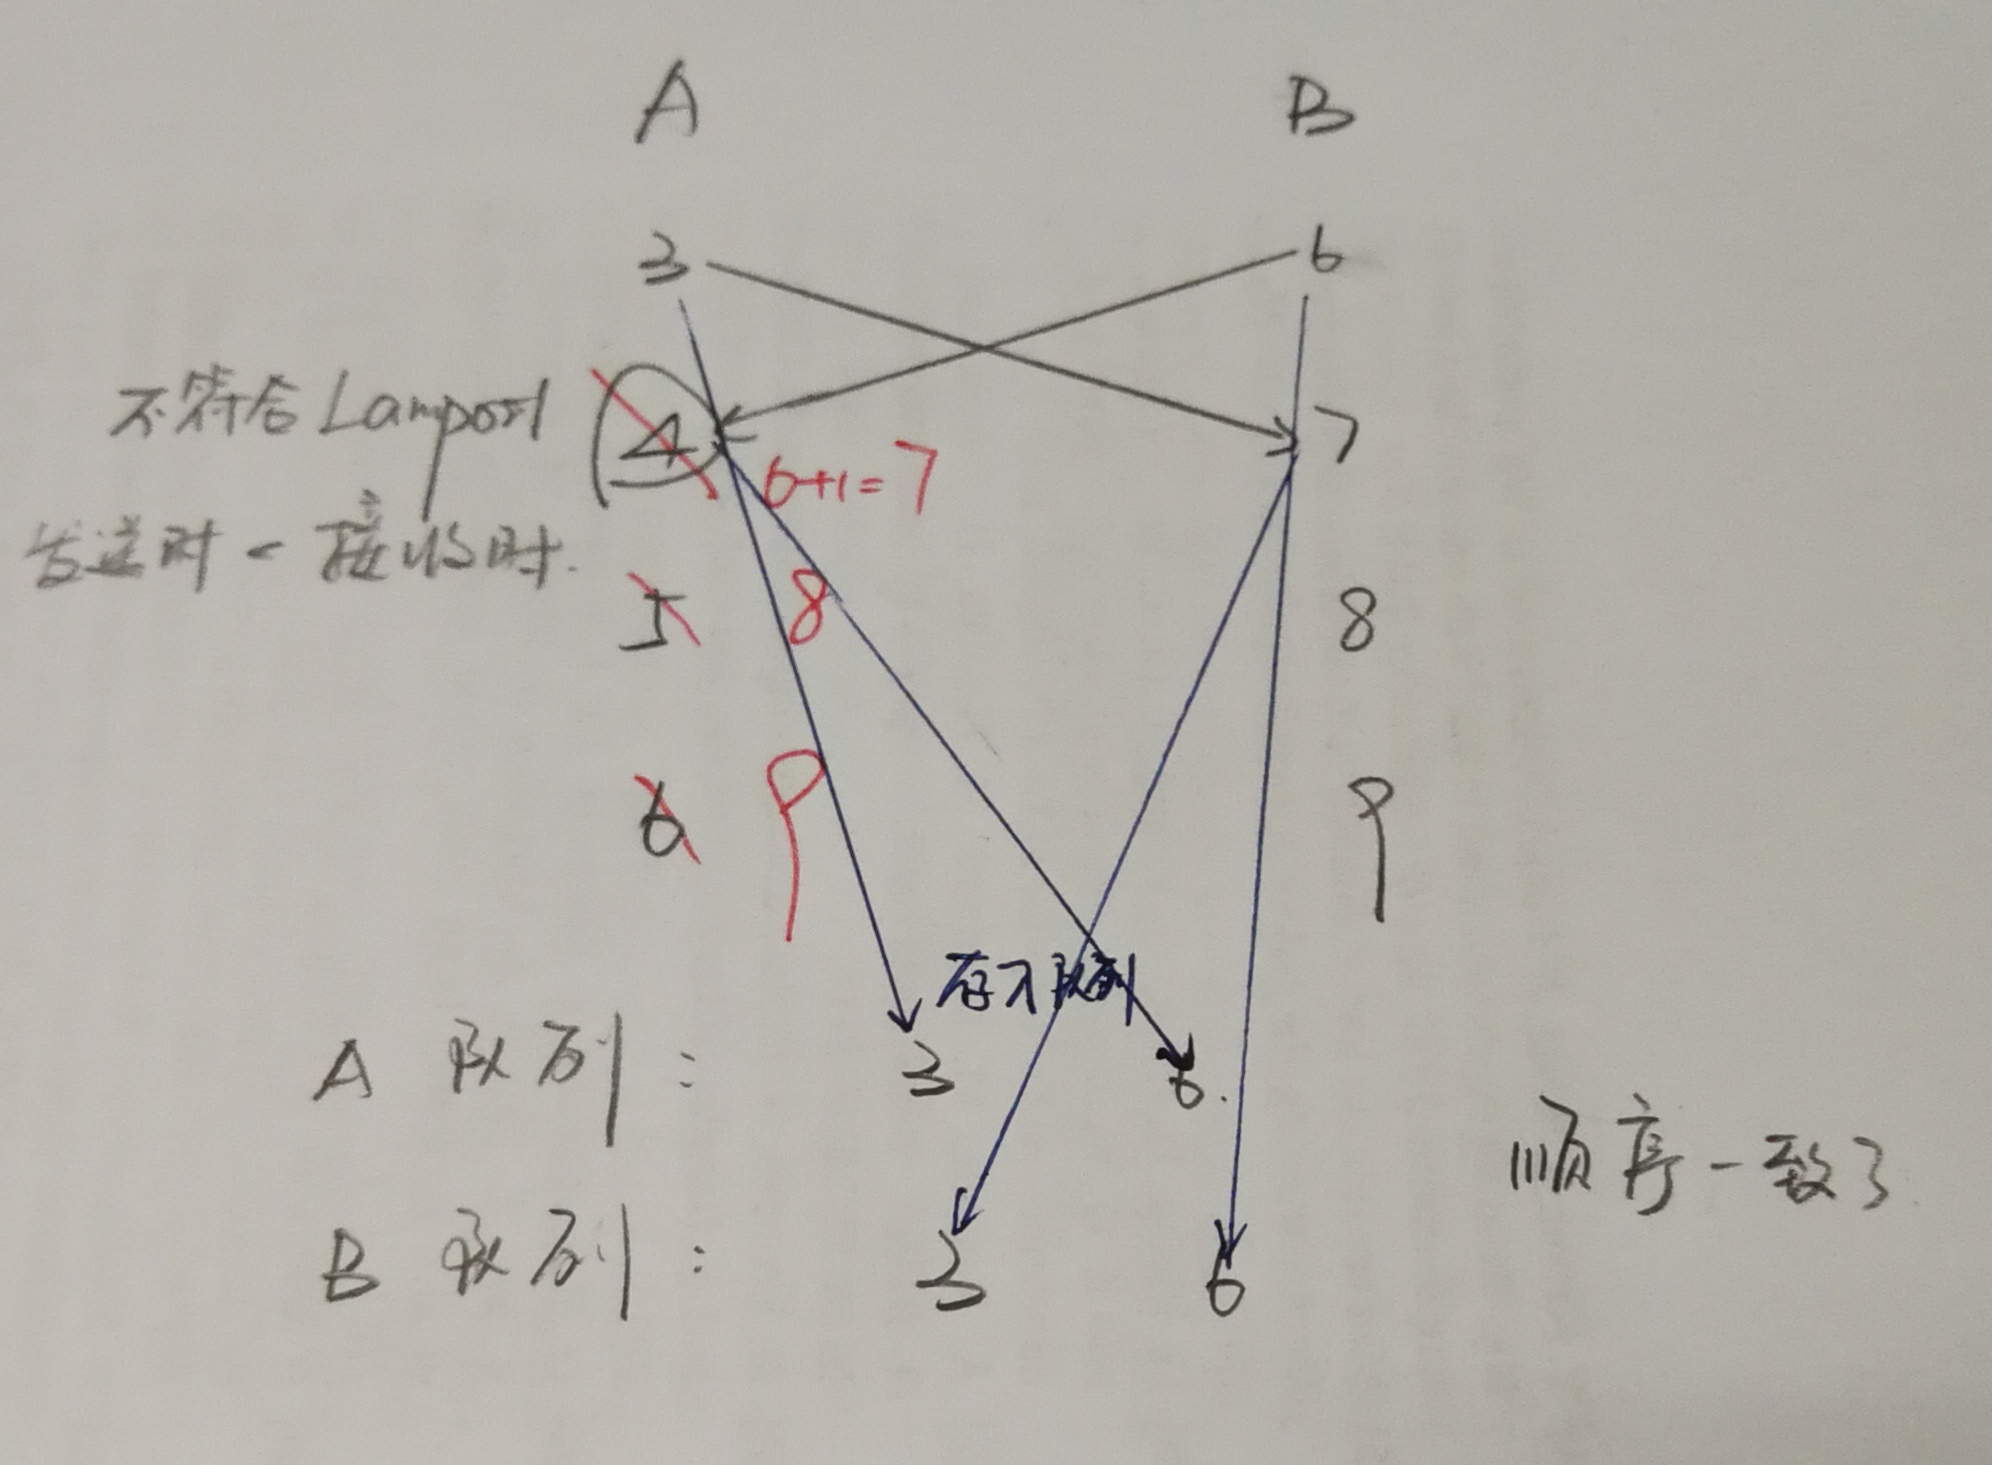 A B
3 6
不符合Lamport 4 6+1=7 7
发送时<接收时.
5 8 8
6 9 9
存入队列
A 队列: 3 6.
顺序一致了
B 队列: 3 6